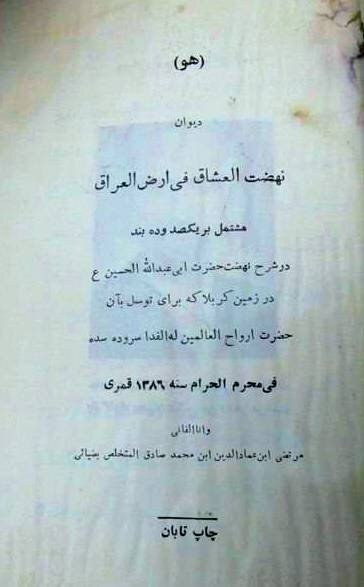 (هو)
دیوان
نهضت العشاق فی ارض العراق
مشتمل بر یکصد و ده بند
در شرح نهضت حضرت ابی عبدالله الحسین ع
در زمین کربلا که برای توسل بآن
حضرت ارواح العالمین له الفدا سروده سده
فی محرم الحرام سنه ۱۳۸۶ قمری
وانا الفانی
مرتضی ابن عمادالدین ابن محمد صادق المتخلص بضیائی
چاپ تابان